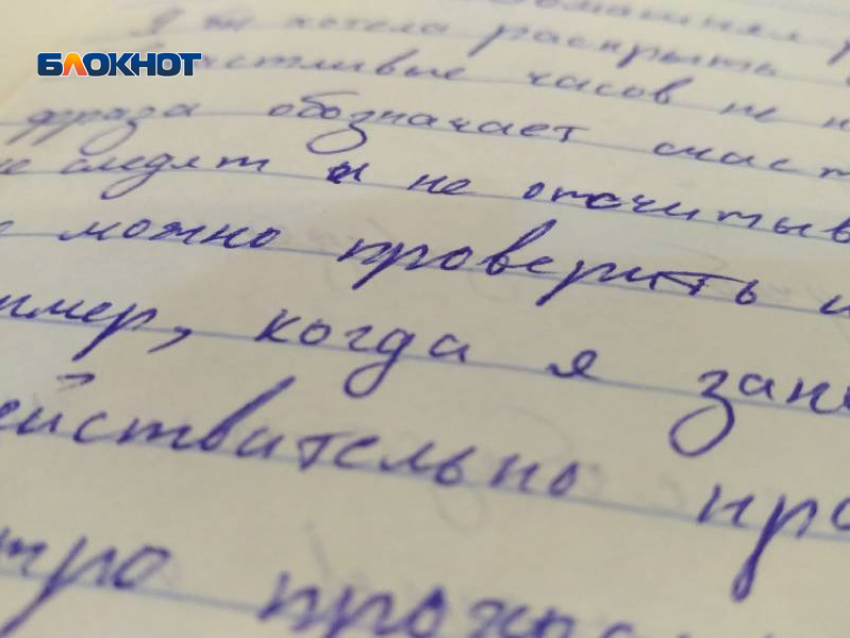 БЛОКНОТ
Я ж хотела раскрыть
часов не н
фраза обозначает счаст
не следят и не отсчитыв
можно проверить и
имер, когда я зани
ействительно про
тро прожи